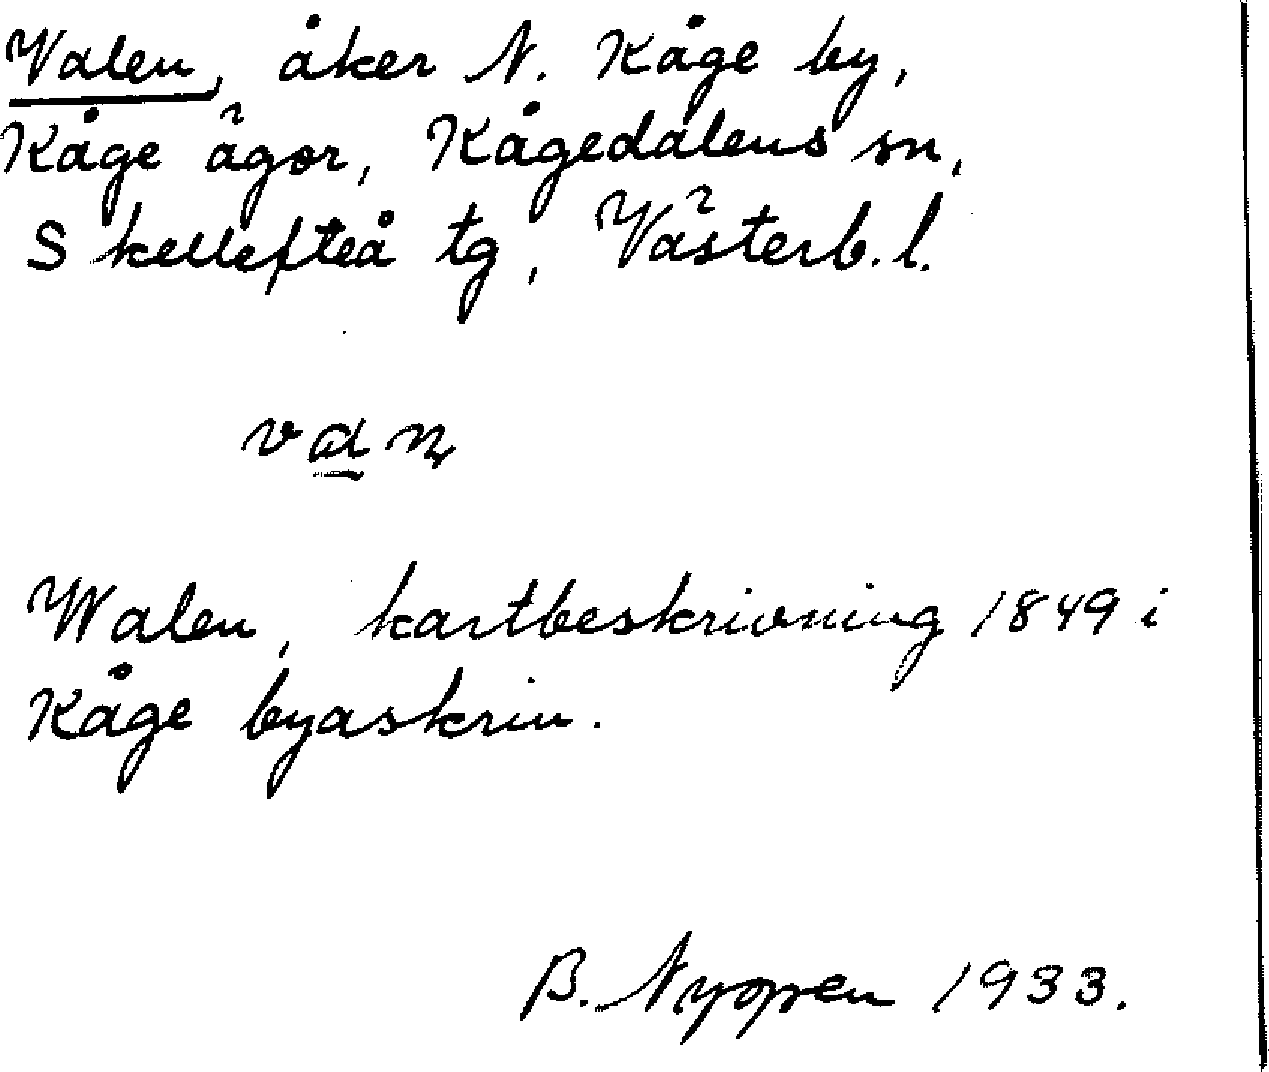 Valen, åker N. Kåge by,
Kåge ägor, Kågedalens sn,
Skellefteå tg, Västerb. l.
Walen, kartbeskrivning 1849 i
Kåge byaskrin.
B. 1933.